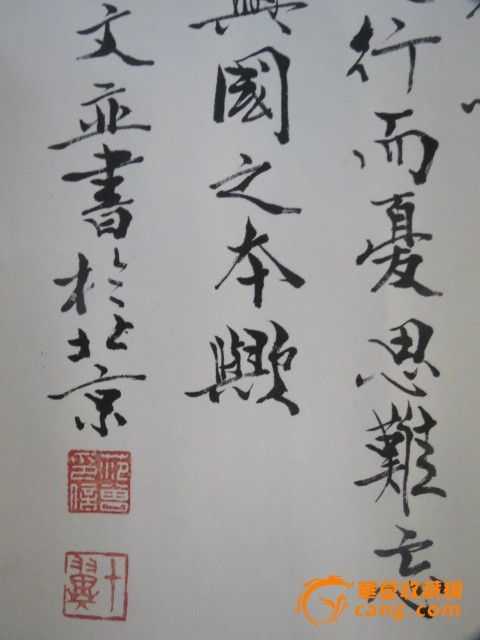 行而憂思難忘
興國之本歟
文並書於北京
范曾印信
十翼
華夏收藏網
cang.com